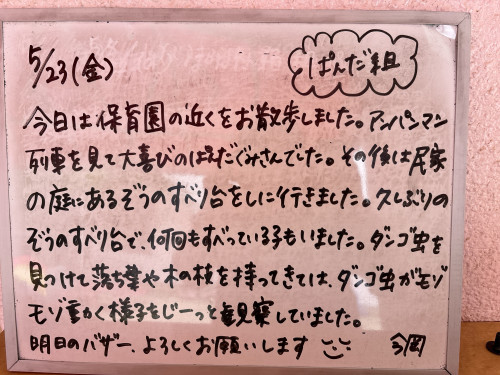 5/23(金)
ぱんだ組
今日は保育園の近くをお散歩しました。アンパンマン
列車を見て大喜びのぱんだぐみさんでした。その後は民家
の庭にあるぞうのすべり台をしに行きました。久しぶりの
ぞうのすべり台で、何回もすべっている子もいました。ダンゴ虫を
見つけて落ち葉や木の枝を持ってきては、ダンゴ虫がモゾ
モゾ動かく様子をじーっと観察していました。
明日のバザー、よろしくお願いします